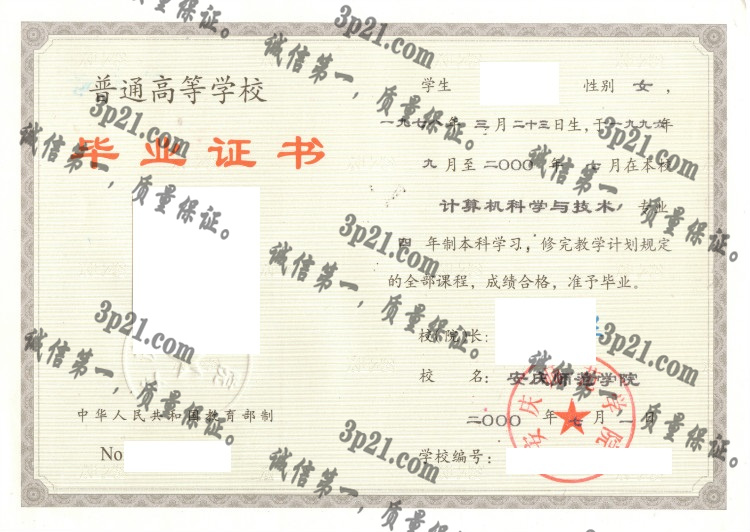 普通高等学校
毕业证书
中华人民共和国教育部制
No
学生 性别 女，
一九七八年 三月二十三日生，于一九九六年
九月至二〇〇〇年 七月在本校
计算机科学与技术 专业
四 年制本科学习，修完教学计划规定
的全部课程，成绩合格，准予毕业。
校(院)长：
校 名：安庆师范学院
二〇〇〇 年 七 月 一 日
学校编号：
安庆师范学院
3p21.com
诚信第一，质量保证。
3p21.com
诚信第一，质量保证。
3p21.com
诚信第一，质量保证。
3p21.com
诚信第一，质量保证。
3p21.com
诚信第一，质量保证。
3p21.com
诚信第一，质量保证。
3p21.com
诚信第一，质量保证。